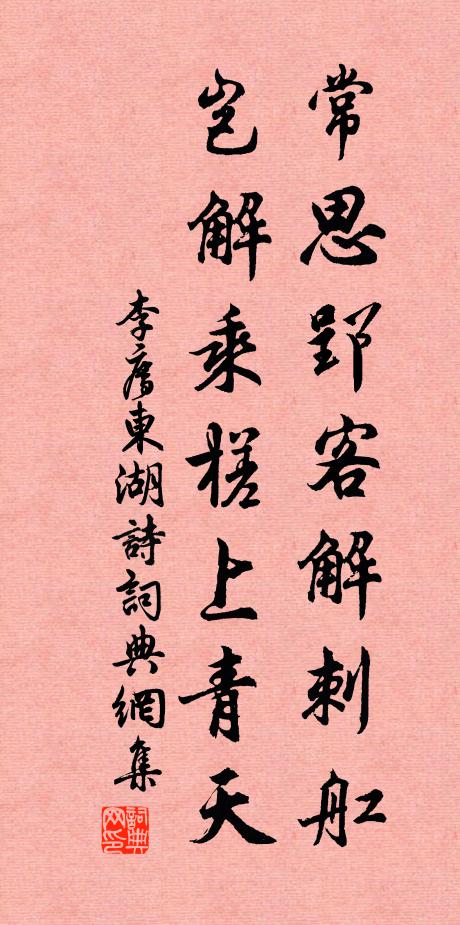 常思郢客解刺舡
豈解乘槎上青天
李廌東湖詩詞典網集
詞典网印